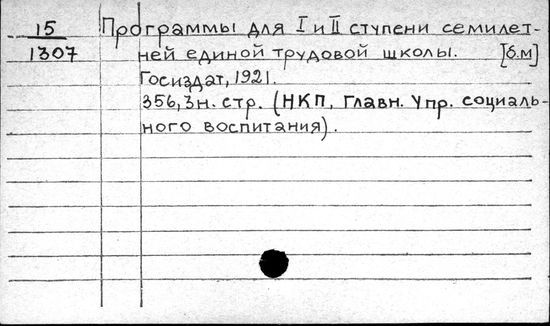 15
1307
Программы для I и II ступени семилет-
ней единой трудовой школы. [б.м]
Госиздат, 1921.
356, 3 н. стр. (НКП, Главн. Упр. социаль-
ного воспитания).